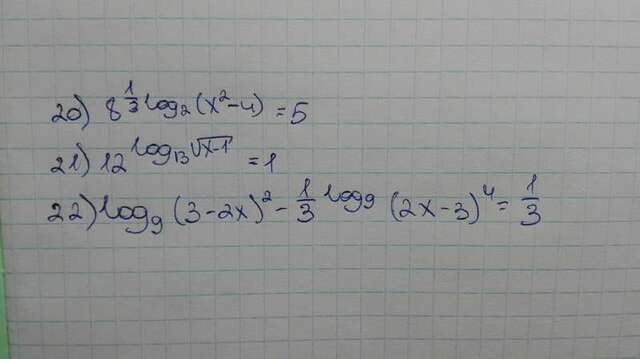 20) 8^{\frac{1}{3} log_2 (x^2-4)} = 5
21) 12^{log_{13} \sqrt{x-1}} = 1
22) log_9 (3-2x)^2 - \frac{1}{3} log_9 (2x-3)^4 = \frac{1}{3}